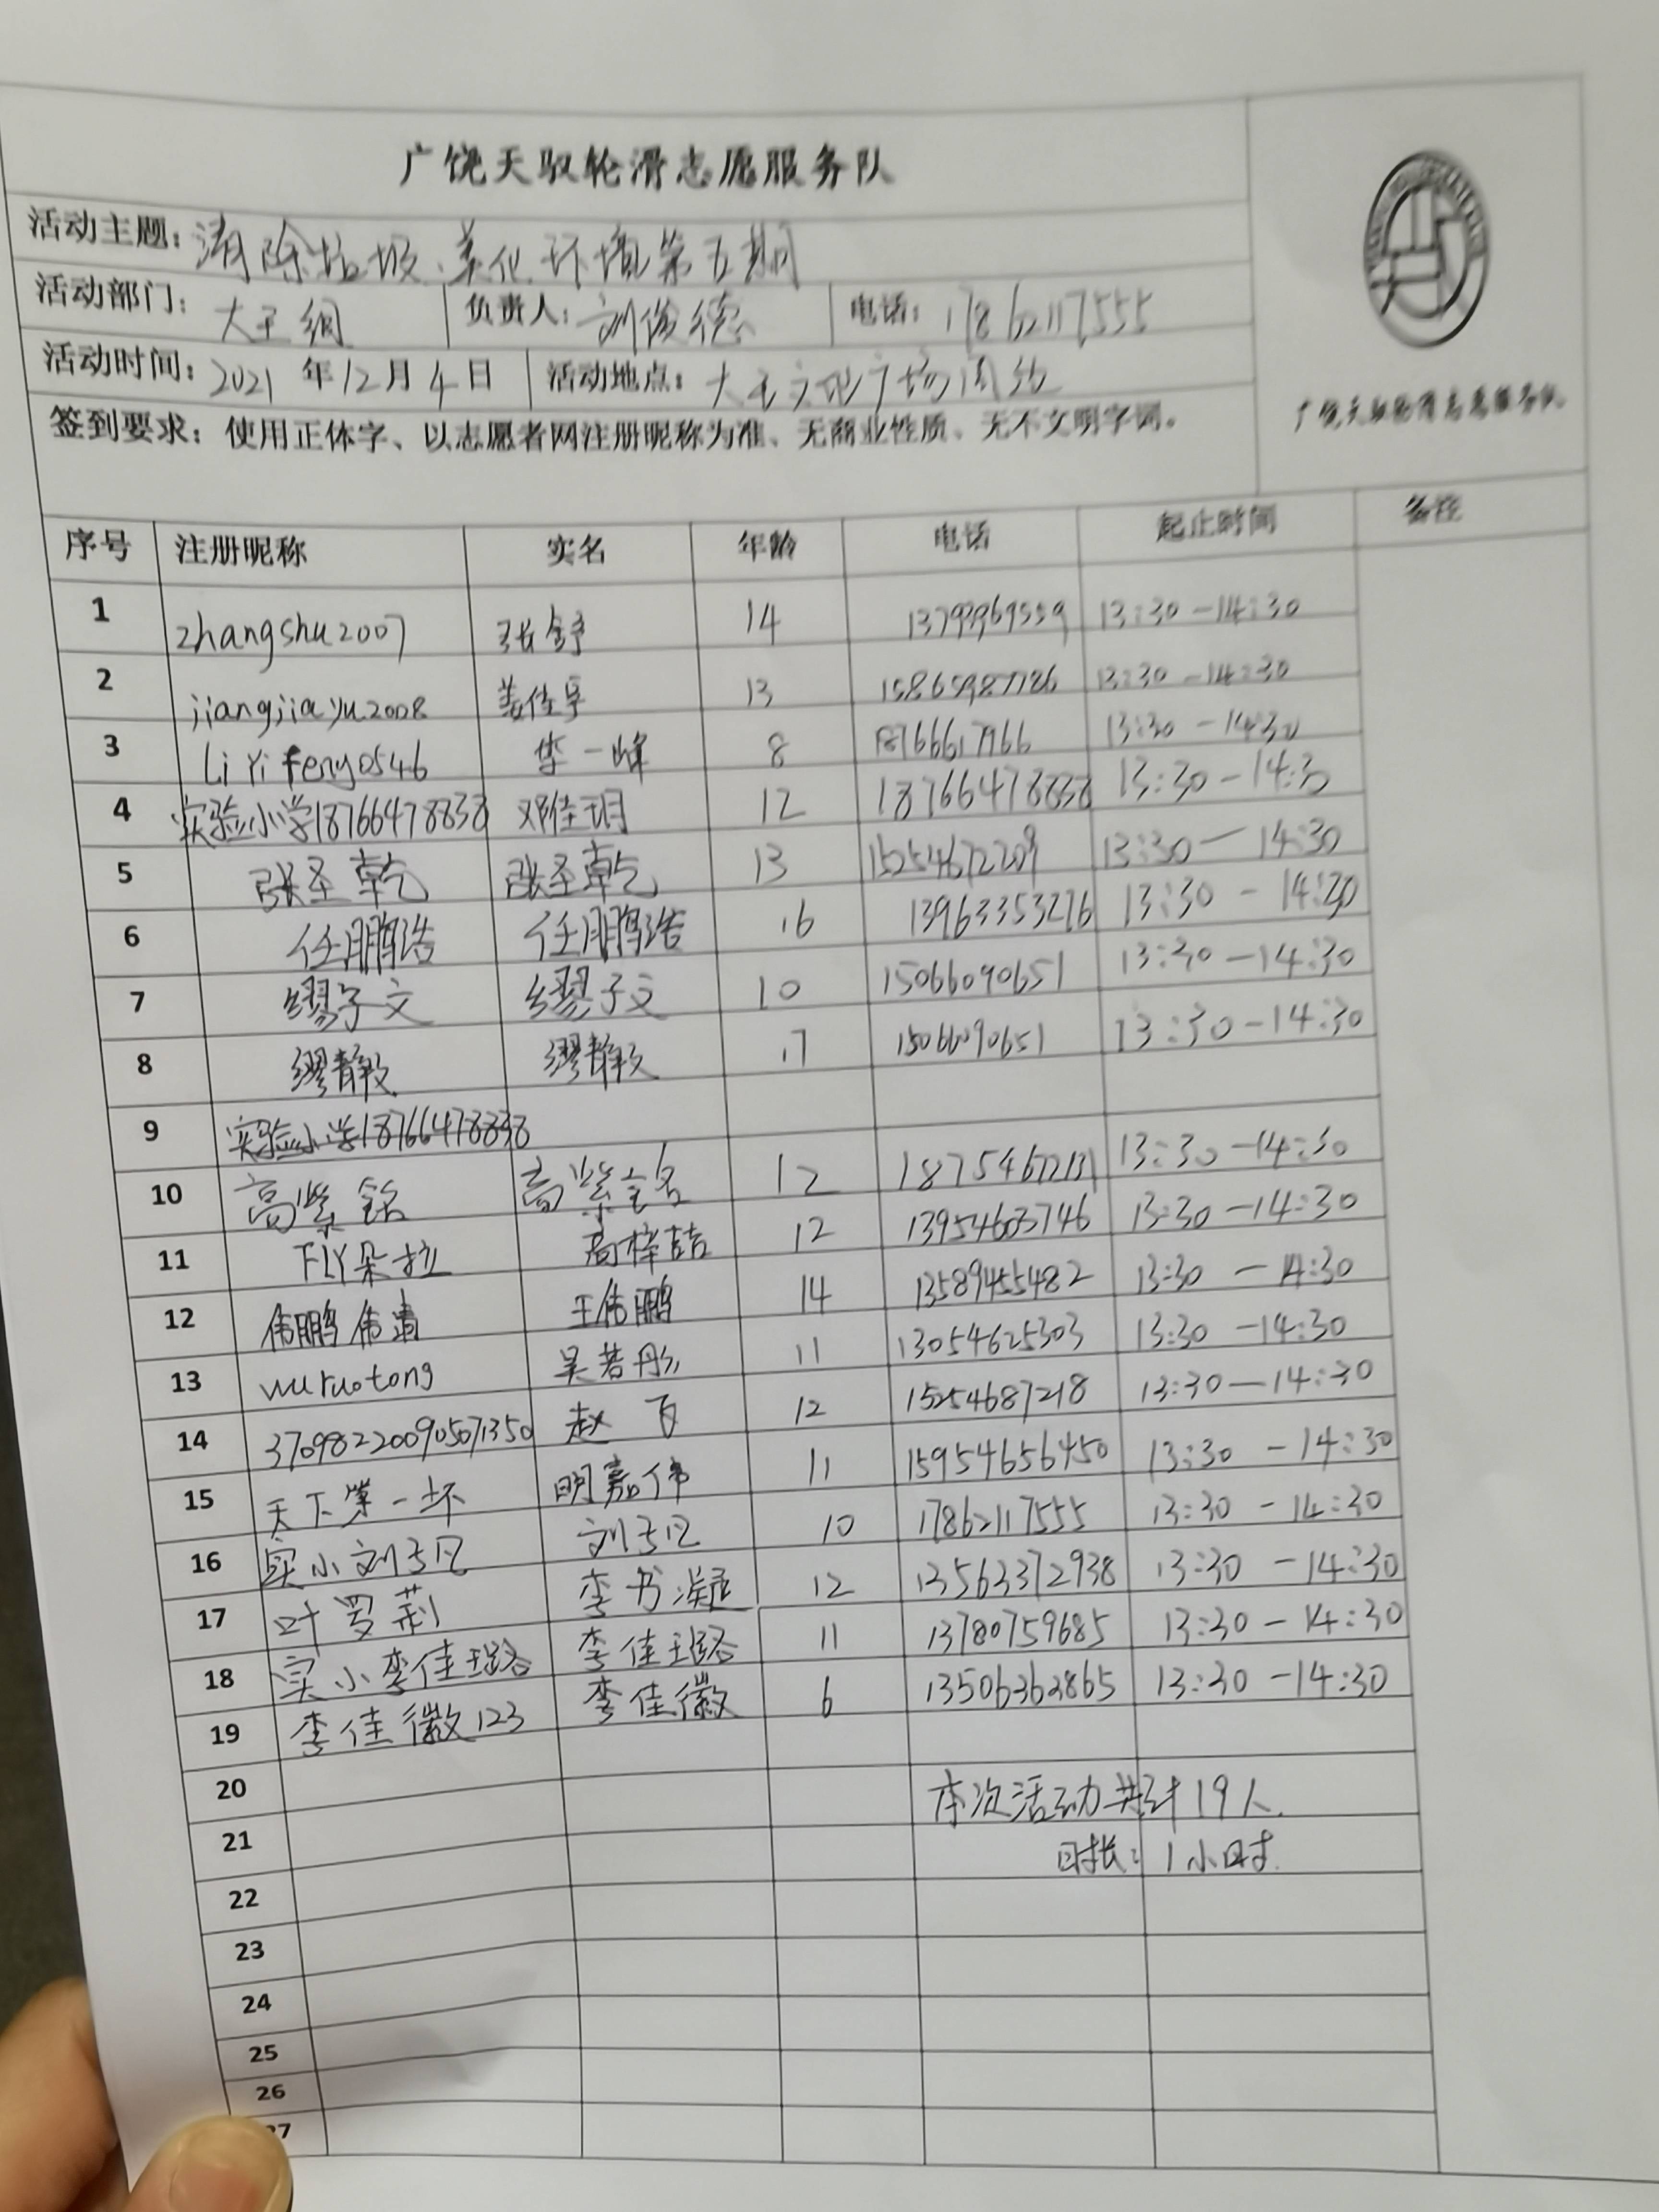 广饶天驭轮滑志愿服务队
活动主题：清除垃圾、美化环境第五期
活动部门：大王组 负责人：刘俊德 电话：17862117555
活动时间：2021年12月4日 活动地点：大王文化广场周边
签到要求：使用正体字、以志愿者网注册昵称为准、无商业性质、无不文明字词。
广饶天驭轮滑志愿服务队
序号 注册昵称 实名 年龄 电话 起止时间 备注
1 zhangshu2007 张舒 14 13:30-14:30
2 jiangjiayu2008 姜佳宇 13 15865987786 13:30-14:30
3 LiYifeng0546 李一峰 8 18766617966 13:30-14:30
4 实验小学18766478838 邓佳玥 12 18766478838 13:30-14:3
5 张圣乾 张圣乾 13 15254672209 13:30-14:30
6 任鹏浩 任鹏浩 16 13963353276 13:30-14:30
7 缪子文 缪子文 10 15066090651 13:30-14:30
8 缪静 缪静 17 15066090651 13:30-14:30
9 实验小学18766478838
10 高紫铭 高紫铭 12 13:30-14:30
11 FLY朵拉 高梓喆 12 13954603746 13:30-14:30
12 伟鹏伟 王伟鹏 14 13589455482 13:30-14:30
13 wuruotong 吴若彤 11 13054625303 13:30-14:30
14 370982200905071350 赵 12 15254687218 13:30-14:30
15 天下第一坏 明嘉伟 11 15954656450 13:30-14:30
16 实小刘子凡 刘子凡 10 17862117555 13:30-14:30
17 叶罗莉 李书凝 12 13563372938 13:30-14:30
18 实小李佳璐 李佳璐 11 13780759685 13:30-14:30
19 李佳徽123 李佳徽 6 13506362865 13:30-14:30
20 本次活动共计19人.
21 时长：1小时.
22
23
24
25
26
27